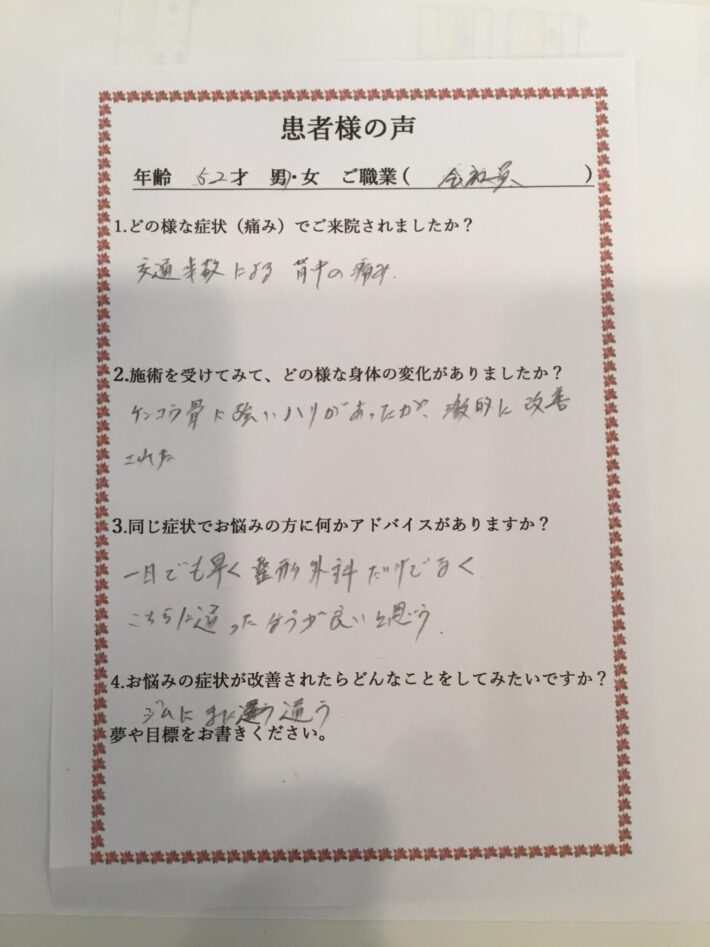 患者様の声
年齢 52才 男・女 ご職業( 会社員 )
1.どの様な症状（痛み）でご来院されましたか？
交通事故による 背中の痛み.
2.施術を受けてみて、どの様な身体の変化がありましたか？
ケンコウ骨に強いハリがあったが、激的に改善
された
3.同じ症状でお悩みの方に何かアドバイスがありますか？
一日でも早く整形外科だけでなく
こちらに通ったほうが良いと思う.
4.お悩みの症状が改善されたらどんなことをしてみたいですか？
ジムに 通う
夢や目標をお書きください。